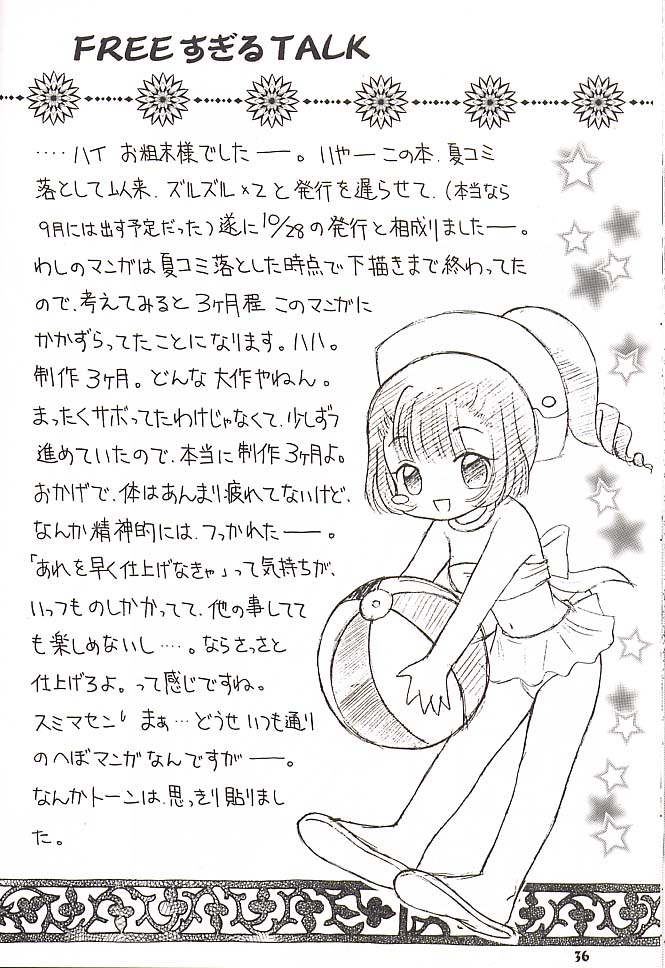 FREEすぎるTALK
‥‥ハイ お粗末様でしたー。いやー この本、夏コミ
落として以来、ズルズル×2と発行を遅らせて、(本当なら
9月には出す予定だった)遂に10/28の発行と相成りましたー。
わしのマンガは夏コミ落とした時点で下描きまで終わってた
ので、考えてみると3ヶ月程 このマンガに
かかずらってたことになります。ハハ。
制作3ヶ月。どんな大作やねん。
まったくサボってたわけじゃなくて、少しずつ
進めていたので、本当に制作3ヶ月よ。
おかげで、体はあんまり疲れてないけど、
なんか精神的には、つっかれたー。
「あれを早く仕上げなきゃ」って気持ちが、
いっつも のしかかってて、他の事してて
も楽しめないし‥‥。ならさっさと
仕上げろよ。って感じですね。
スミマセン まぁ…どうせ いつも通り
のへぼマンガなんですがー。
なんかトーンは、思っきり貼りまし
た。
36